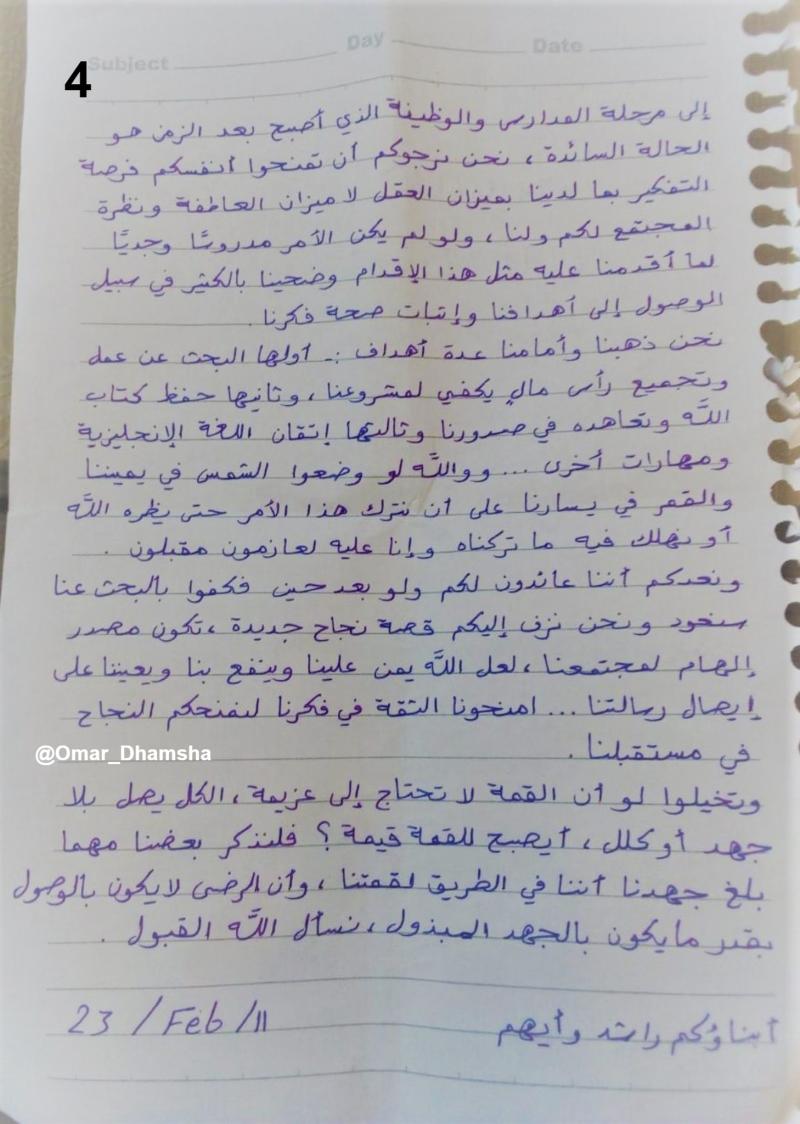 4
Subject Day Date
إلى مرحلة المدارس والوظيفة الذي أصبح بعد الزمن هو
الحالة السائدة، نحن نرجوكم أن تمنحوا أنفسكم فرصة
التفكير بما لدينا بميزان العقل لا ميزان العاطفة ونظرة
المجتمع لكم ولنا، ولو لم يكن الأمر مدروسًا وجديًّا
لما أقدمنا عليه مثل هذا الإقدام وضحينا بالكثير في سبيل
الوصول إلى أهدافنا وإثبات صحة فكرنا.
نحن ذهبنا وأمامنا عدة أهداف :- أولها البحث عن عمل
وتجميع رأس مالٍ يكفي لمشروعنا، وثانيها حفظ كتاب
اللَّه وتعاهده في صدورنا وثالثها إتقان اللغة الإنجليزية
ومهارات أخرى ... وواللَّه لو وضعوا الشمس في يميننا
والقمر في يسارنا على أن نترك هذا الأمر حتى يظره اللَّه
أو نهلك فيه ما تركناه وإنا عليه لعازمون مقبلون.
ونعدكم أننا عائدون لكم ولو بعد حين فكفوا بالبحث عنا
سنعود ونحن نزف إليكم قصة نجاح جديدة، تكون مصدر
إلهام لمجتمعنا، لعل اللَّه يمن علينا وينفع بنا ويعيننا على
إيصال رسالتنا ... امنحونا الثقة في فكرنا لنمنحكم النجاح
في مستقبلنا.
@Omar_Dhamsha
وتخيلوا لو أن القمة لا تحتاج إلى عزيمة، الكل يصل بلا
جهد أو كلل، أيصبح للقمة قيمة؟ فلنذكر بعضنا مهما
بلغ جهدنا أننا في الطريق لقمتنا، وأن الرضى لا يكون بالوصول
بقدر ما يكون بالجهد المبذول، نسأل اللَّه القبول.
أبناؤكم راشد وأيهم
23 / Feb / 11